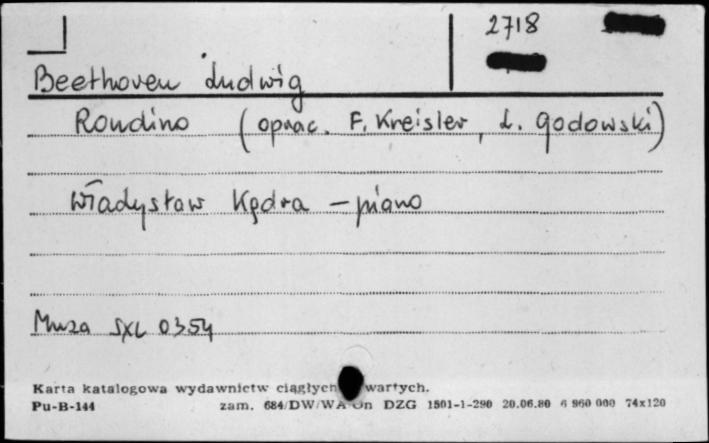 2718
Beethoven Ludwig
Rondino (oprac. F. Kreisler, L. Godowski)
Władysław Kędra – piano
Muza SXL 0354
Karta katalogowa wydawnictw ciągłych wartych.
Pu-B-144 zam. 684/DW/WA On DZG 1501-1-290 20.06.80 6 960 000 74x120